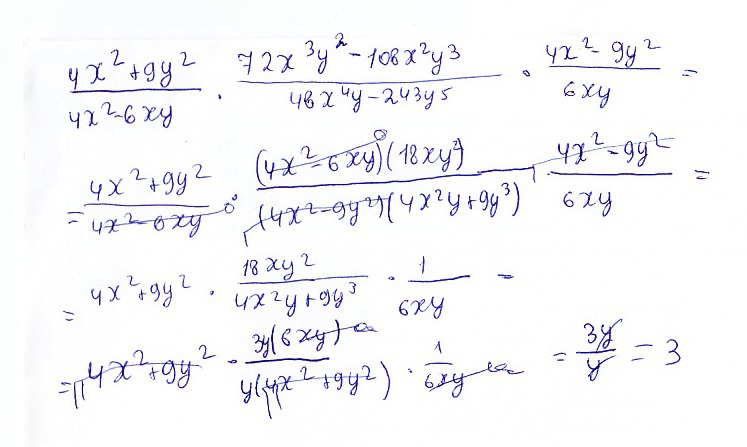 \frac{4x^2+9y^2}{4x^2-6xy} \cdot \frac{72x^3y^2-108x^2y^3}{48x^4y-243y^5} \cdot \frac{4x^2-9y^2}{6xy} =
= \frac{4x^2+9y^2}{4x^2-6xy} \cdot \frac{(4x^2-6xy)(18xy^2)}{(4x^2-9y^2)(4x^2y+9y^3)} \cdot \frac{4x^2-9y^2}{6xy} =
= 4x^2+9y^2 \cdot \frac{18xy^2}{4x^2y+9y^3} \cdot \frac{1}{6xy} =
= 4x^2+9y^2 \cdot \frac{3y(6xy)}{y(4x^2+9y^2)} \cdot \frac{1}{6xy} = \frac{3y}{y} = 3